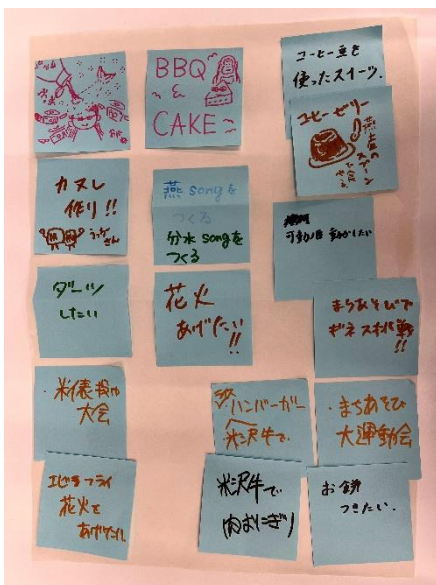 BBQ
&
CAKE
コーヒー豆を
使ったスイーツ.
コーヒーゼリー
燕
スプーン
カヌレ
作り!!
さん
燕 songを
つくる
分水 songを
つくる
可動堰 動かしたい
ダーツ
したい
花火
あげたい
!!
まちあそびで
ギネス挑戦
!!
・米俵投げ
大会
ハンバーガー
米沢牛で
・まちあそび
大運動会
エビフライ
花火を
あげたい.
米沢牛で
肉おにぎり
お餅
つきたい.